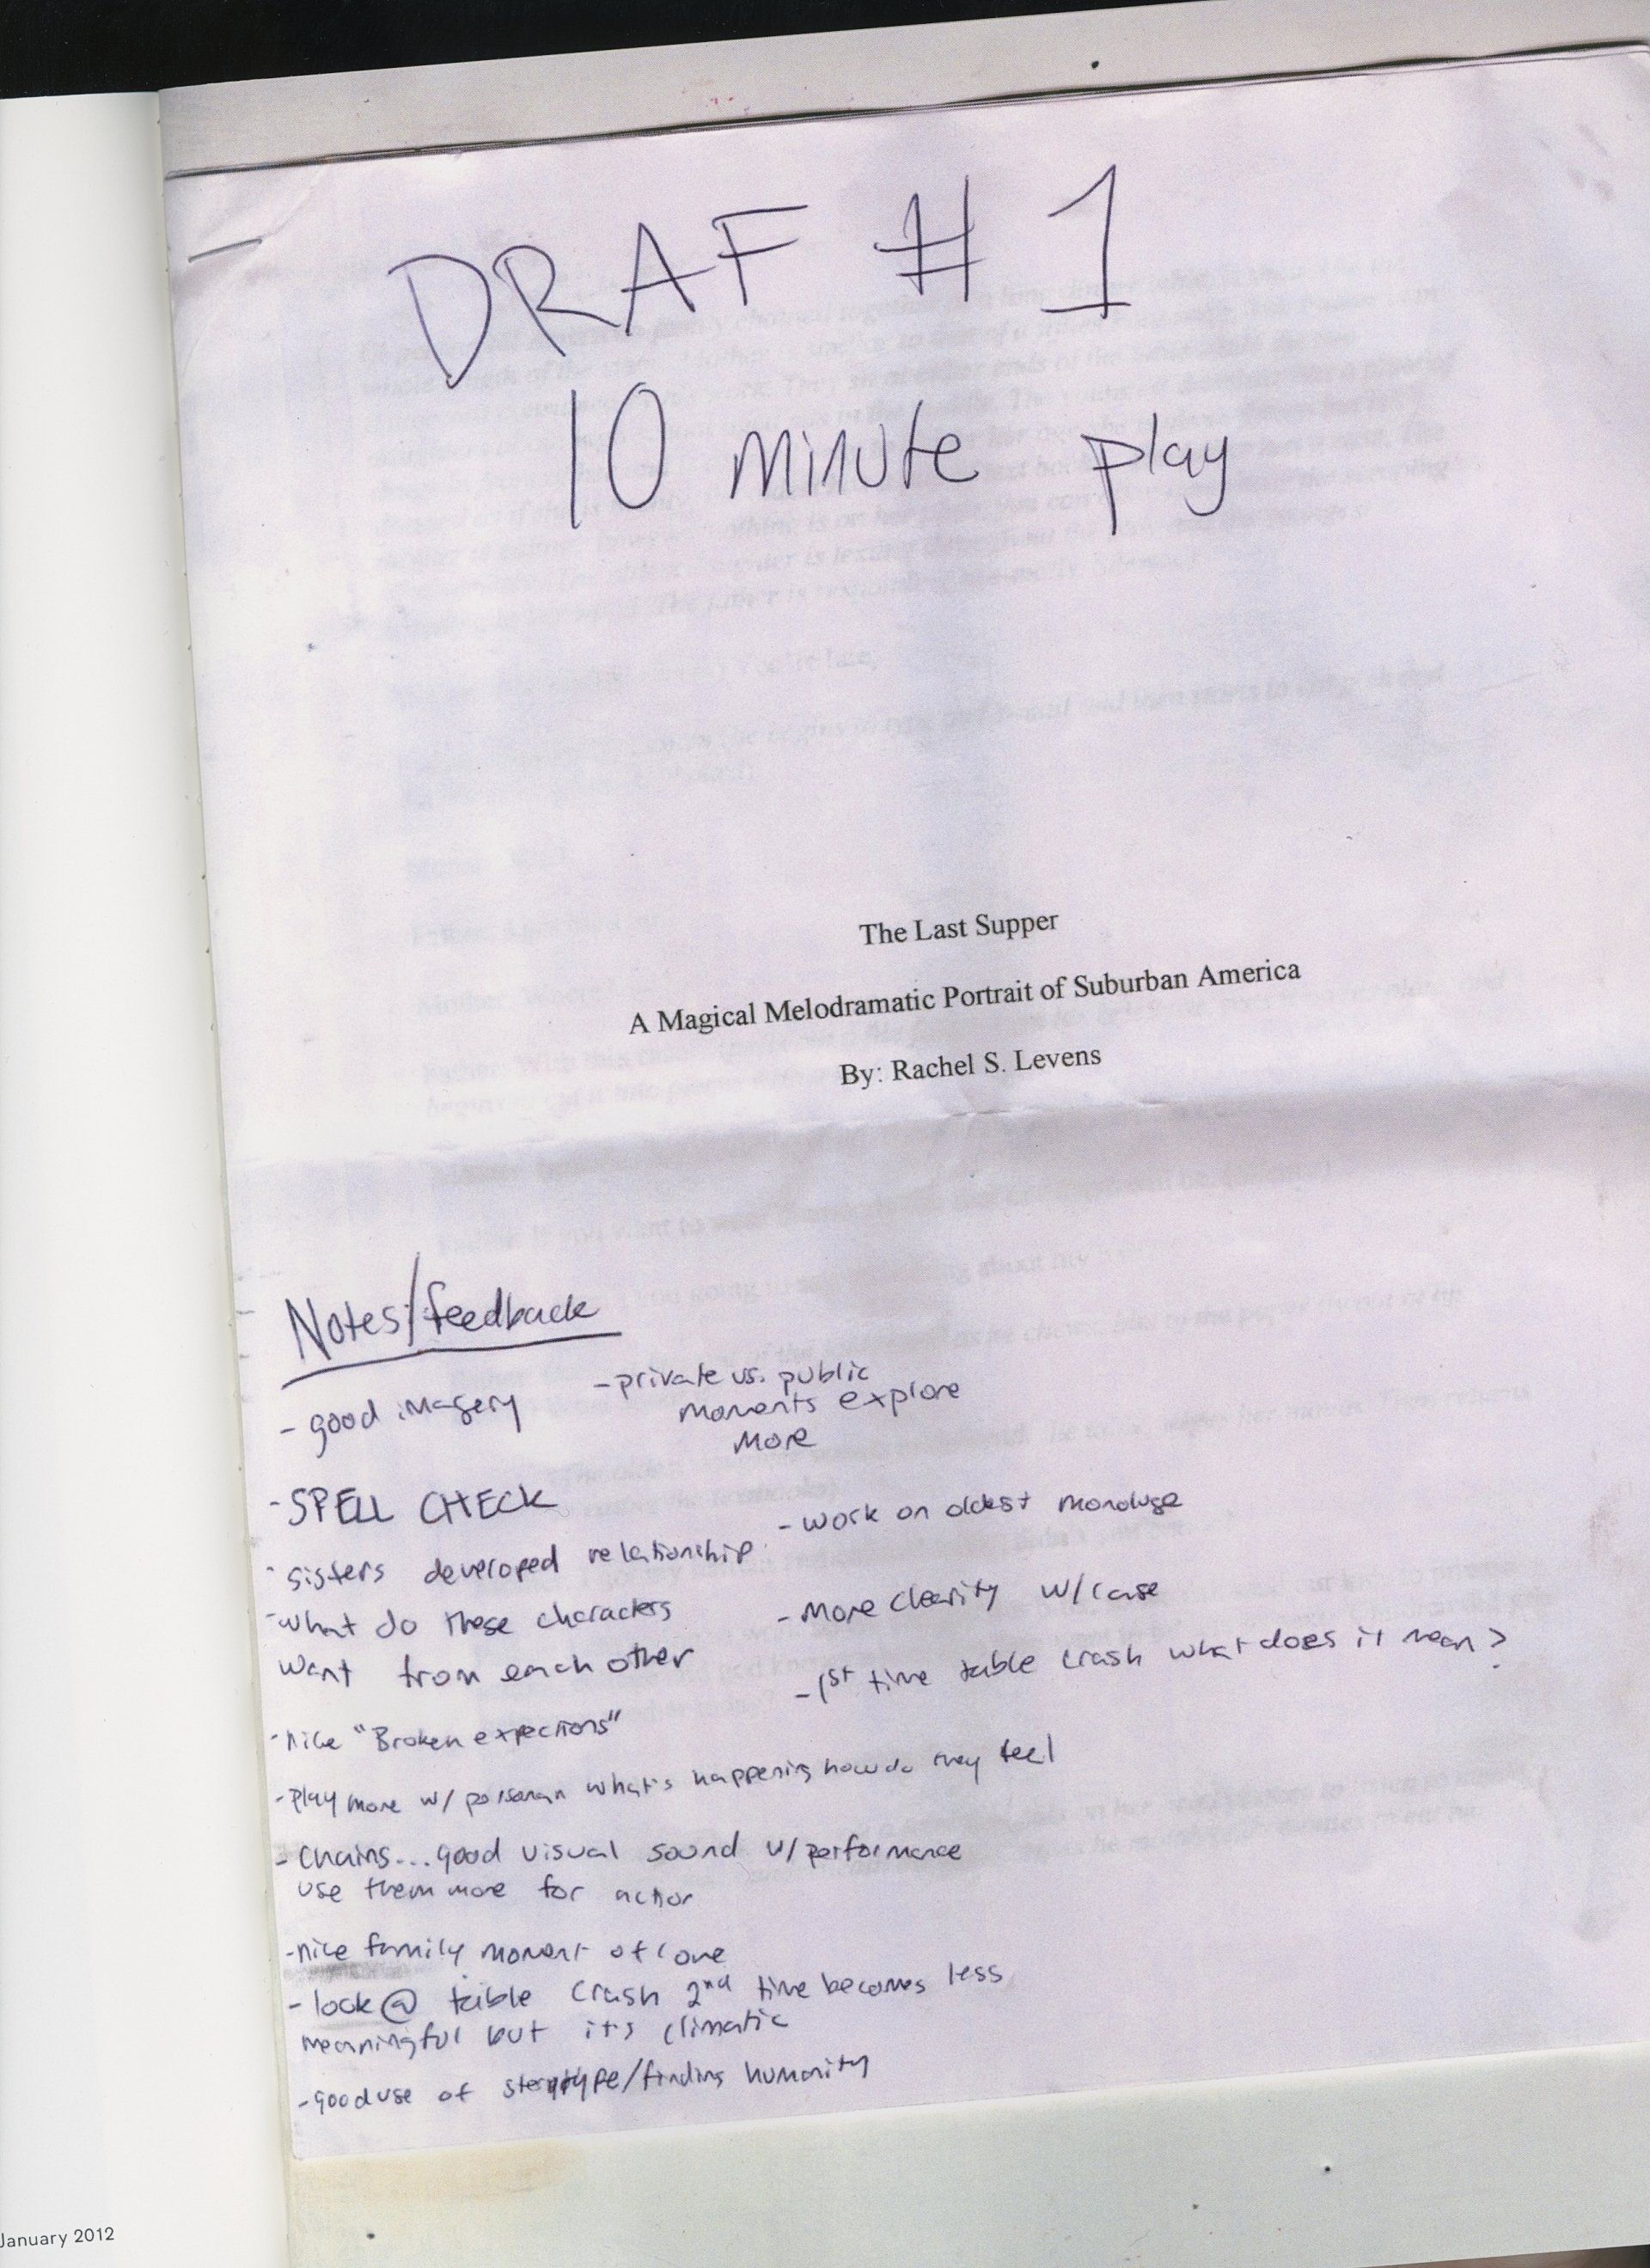 DRAF # 1
10 minute play
The Last Supper
A Magical Melodramatic Portrait of Suburban America
By: Rachel S. Levens
Notes/feedback
- good imagery
- private vs. public
moments explore
more
- SPELL CHECK
- work on oldest monoluge
- sisters developed relationship
- what do these characters
want from each other
- more clearity w/case
- 1st time table crash what does it mean?
- nice "Broken expections"
- play more w/ what's happening how do they feel
- Chains... good visual sound w/performance
use them more for action
- nice family moment of love
- look @ table crash 2nd time becomes less
meaningful but its climatic
- good use of /finding humanity
January 2012